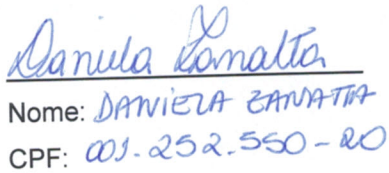 Daniela Zanatta
Nome: DANIELA ZANATTA
CPF: 001.252.550-20